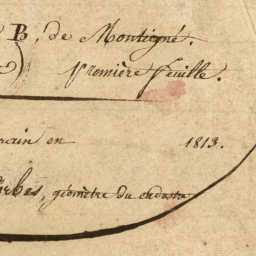 B, de Montigné.
Première feuille.
rain en 1813.
rbes, géomètre du cadastre